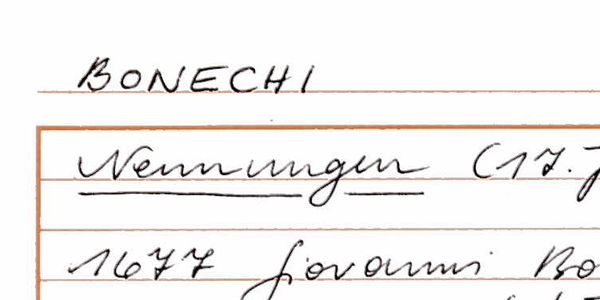 BONECHI
Nennungen (17.J
1677 Giovanni Bo